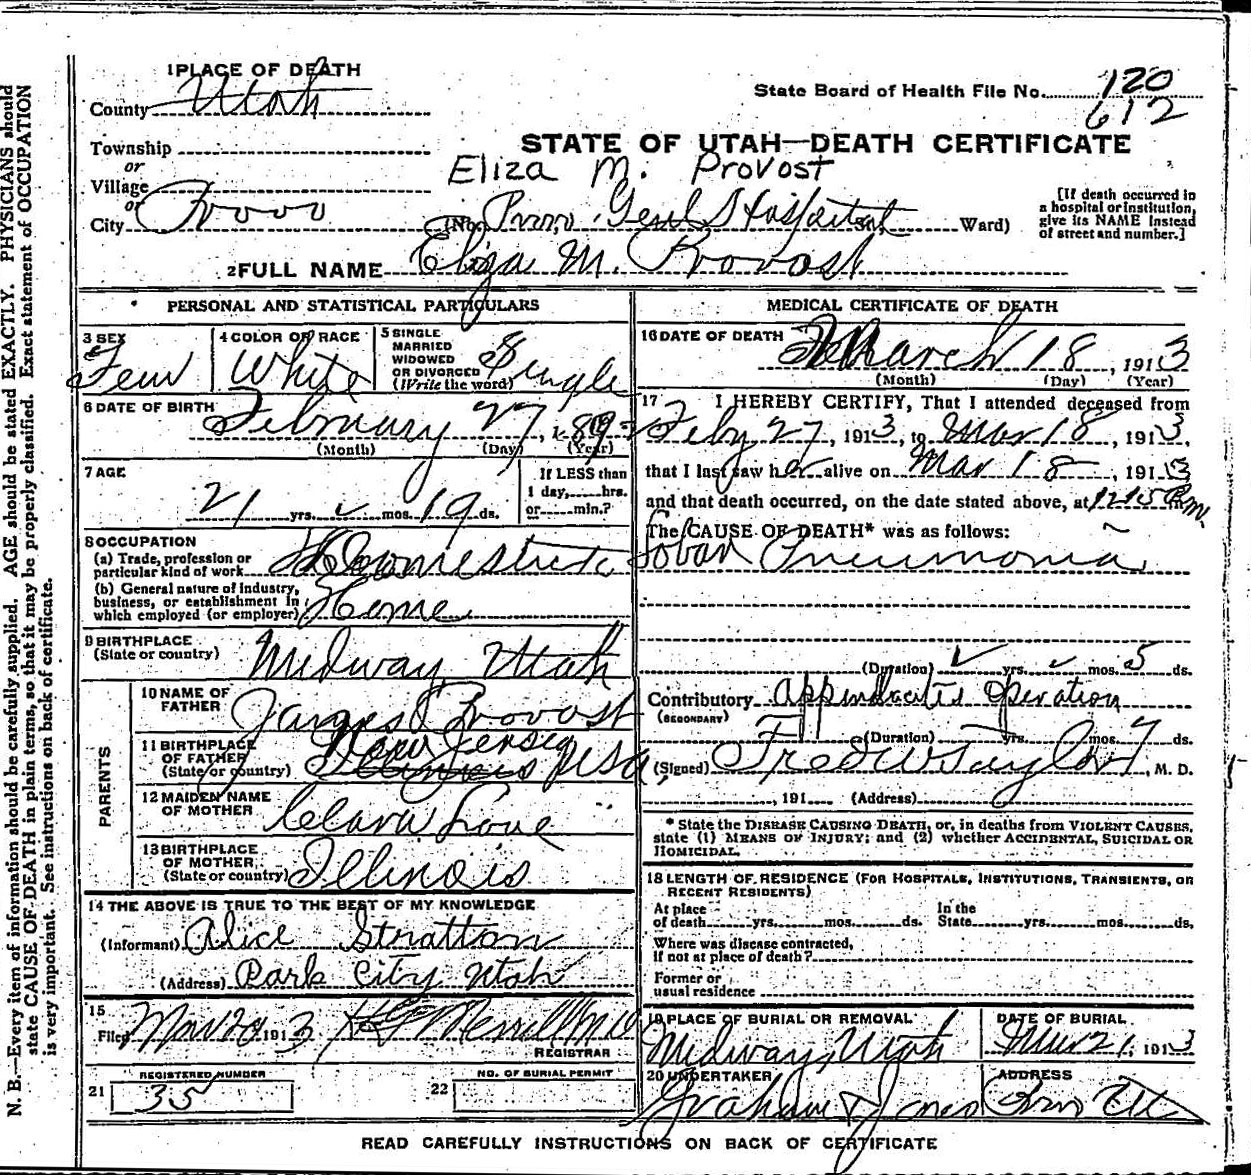 1 PLACE OF DEATH
County Utah
State Board of Health File No. 120
612
Township
or
Village
or
City Provo
STATE OF UTAH—DEATH CERTIFICATE
Eliza M. Provost
(No. Provo Genl Hospital St., Ward)
[If death occurred in a hospital or institution, give its NAME instead of street and number.]
2 FULL NAME Eliza M. Provost
PERSONAL AND STATISTICAL PARTICULARS
3 SEX Fem
4 COLOR OR RACE White
5 SINGLE MARRIED WIDOWED OR DIVORCED (Write the word) Single
6 DATE OF BIRTH February 27, 1892
(Month) (Day) (Year)
7 AGE
21 yrs. mos. 19 ds.
If LESS than 1 day, hrs. or min.?
8 OCCUPATION
(a) Trade, profession or particular kind of work Domestic
(b) General nature of industry, business, or establishment in which employed (or employer) Home
9 BIRTHPLACE (State or country) Midway, Utah
PARENTS
10 NAME OF FATHER James Provost
11 BIRTHPLACE OF FATHER (State or country) New Jersey Illinois USA
12 MAIDEN NAME OF MOTHER Clara Love
13 BIRTHPLACE OF MOTHER (State or country) Illinois
14 THE ABOVE IS TRUE TO THE BEST OF MY KNOWLEDGE
(Informant) Alice Stratton
(Address) Park City Utah
15
Filed Mar 20 1913 Merrill MD
REGISTRAR
21 REGISTERED NUMBER 35
22 NO. OF BURIAL PERMIT
MEDICAL CERTIFICATE OF DEATH
16 DATE OF DEATH March 18, 1913
(Month) (Day) (Year)
17 I HEREBY CERTIFY, That I attended deceased from
Feby 27, 1913, to Mar 18, 1913,
that I last saw her alive on Mar 18, 1913
and that death occurred, on the date stated above, at 1215 Pm.
The CAUSE OF DEATH* was as follows:
Lobar Pneumonia
(Duration) yrs. mos. 5 ds.
Contributory Appendicitis Operation
(SECONDARY)
(Duration) yrs. mos. 7 ds.
(Signed) Fred W Taylor, M. D.
, 191 (Address)
* State the DISEASE CAUSING DEATH, or, in deaths from VIOLENT CAUSES, state (1) MEANS OF INJURY; and (2) whether ACCIDENTAL, SUICIDAL OR HOMICIDAL.
18 LENGTH OF RESIDENCE (FOR HOSPITALS, INSTITUTIONS, TRANSIENTS, OR RECENT RESIDENTS)
At place of death yrs. mos. ds. In the State yrs. mos. ds.
Where was disease contracted, if not at place of death?
Former or usual residence
19 PLACE OF BURIAL OR REMOVAL Midway, Utah
DATE OF BURIAL Mar 21, 1913
20 UNDERTAKER Graham & Jones
ADDRESS Provo Ut
READ CAREFULLY INSTRUCTIONS ON BACK OF CERTIFICATE
N. B.—Every item of information should be carefully supplied. AGE should be stated EXACTLY. PHYSICIANS should
state CAUSE OF DEATH in plain terms, so that it may be properly classified. Exact statement of OCCUPATION
is very important. See instructions on back of certificate.